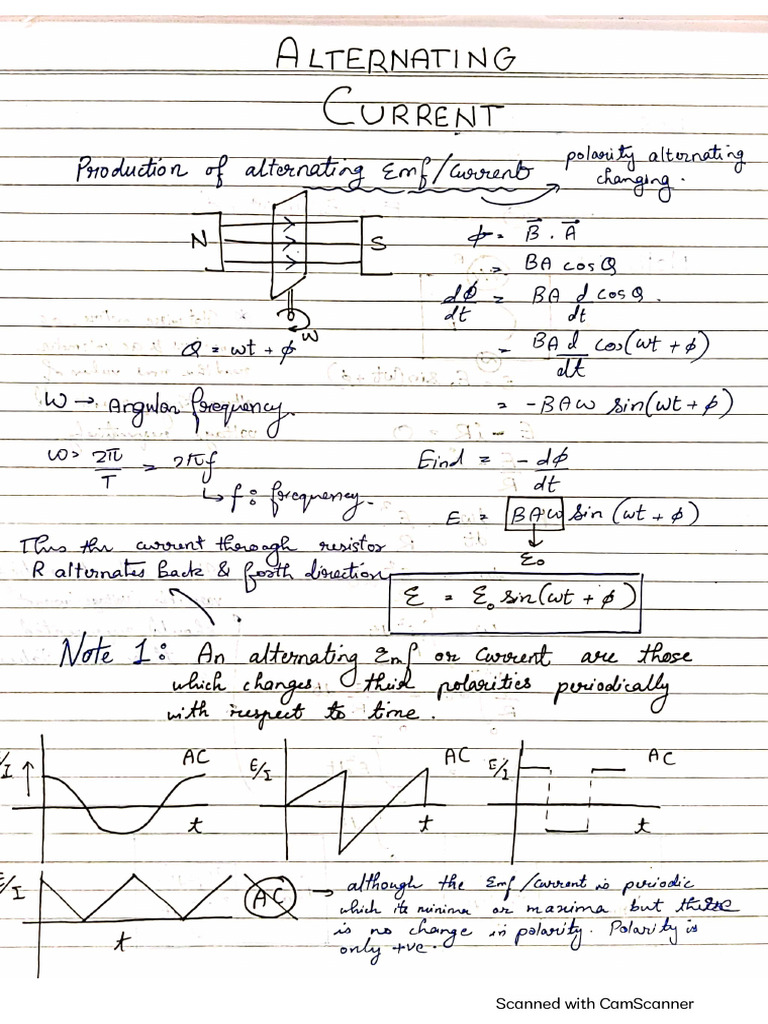 ALTERNATING
CURRENT
Production of alternating Emf/Current
polarity alternating
changing.
N S
ω
ϕ = B⃗ . A⃗
= BA cosQ
dϕ/dt = BA d/dt cosQ.
Q = ωt + ϕ
= BA d/dt cos(ωt + ϕ)
ω → Angular frequency.
= -BAω sin(ωt + ϕ)
ω = 2π/T = 2πf
↳ f : frequency.
Eind = -dϕ/dt
E = BAω sin(ωt + ϕ)
↓
ε₀
Thus the current through resistor
R alternates back & forth direction
ε = ε₀ sin(ωt + ϕ)
Note 1: An alternating Emf or Current are those
which changes their polarities periodically
with respect to time.
E/I ↑ AC t
E/I AC t
E/I AC t
E/I t
AC → although the Emf/current is periodic
which its minima or maxima but there
is no change in polarity. Polarity is
only +ve.
Scanned with CamScanner